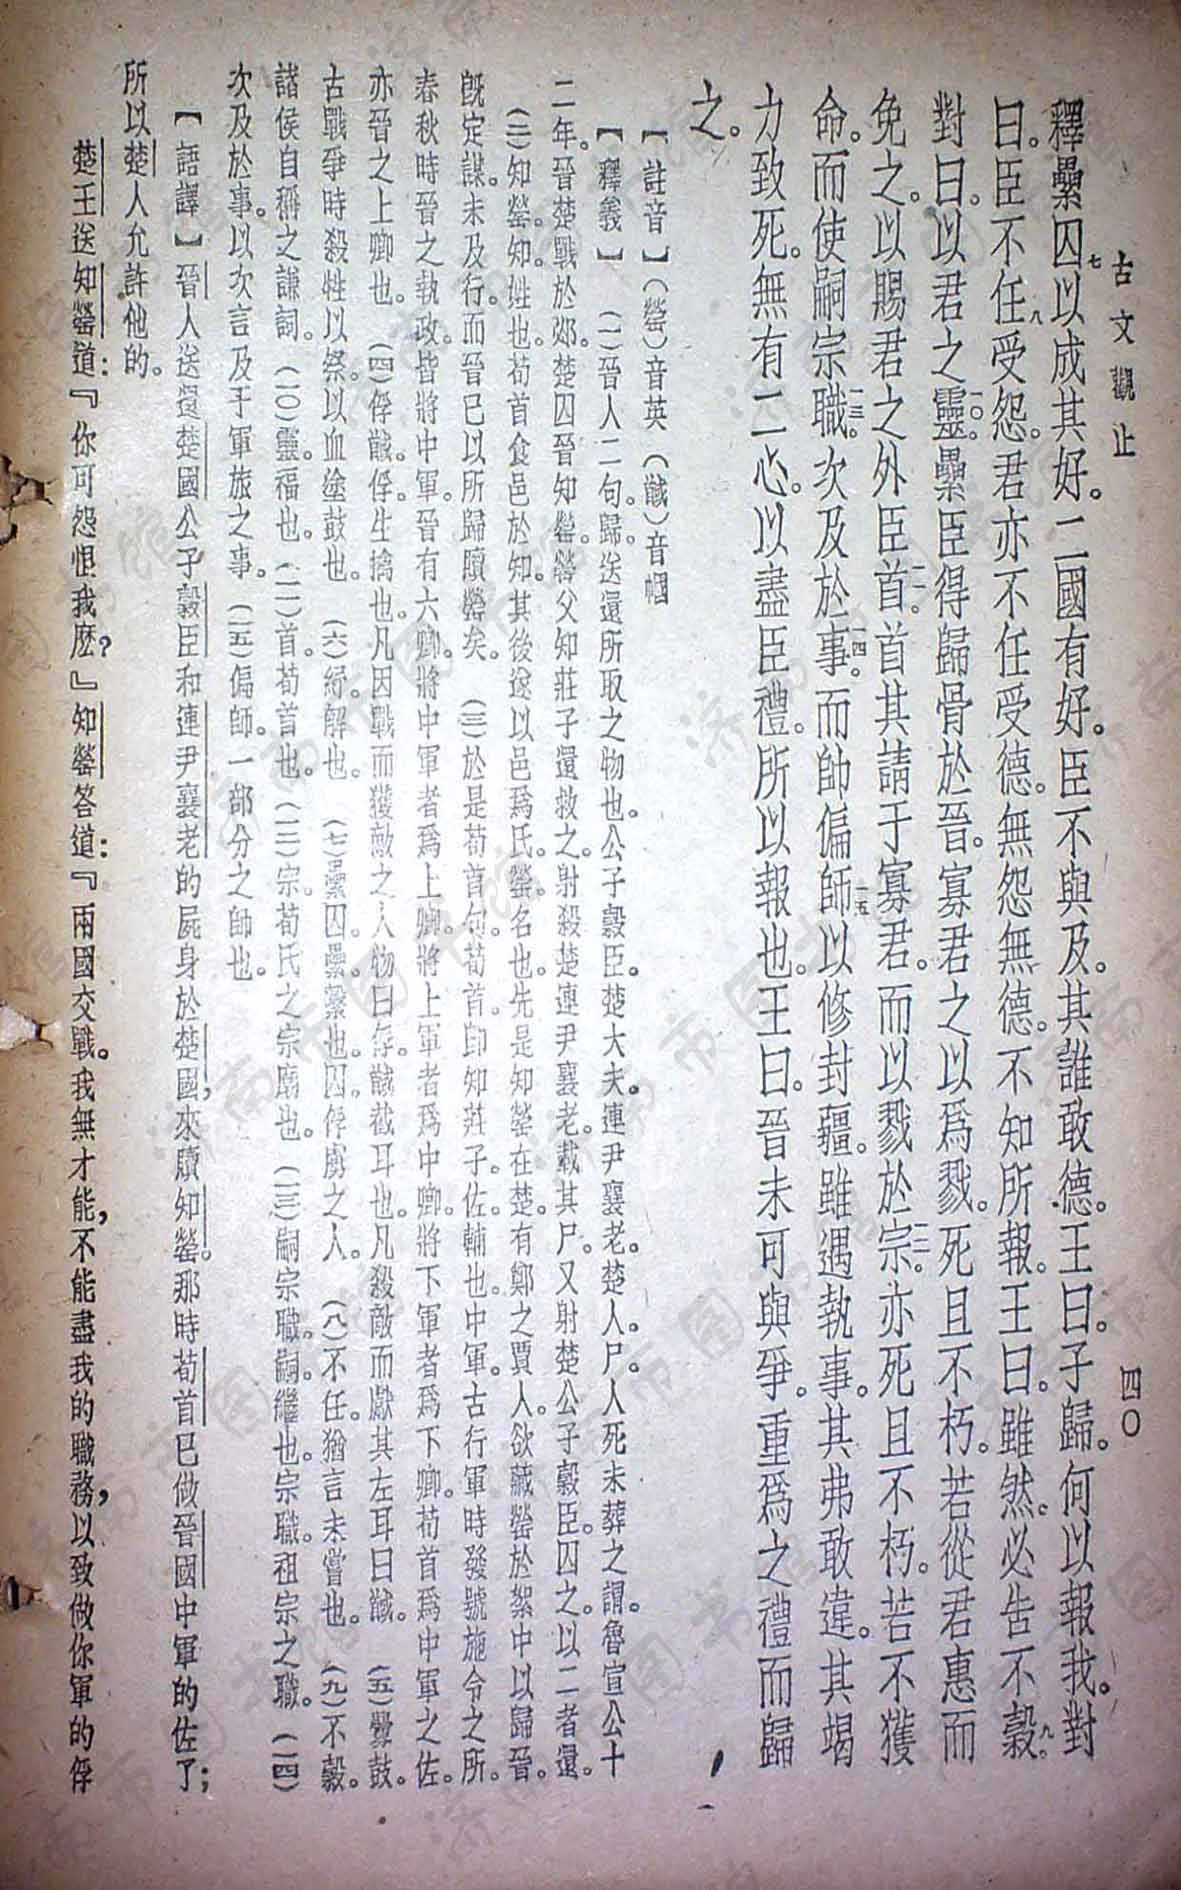 古文觀止
四〇
釋纍囚七以成其好。二國有好。臣不與及。其誰敢德。王曰。子歸。何以報我。對
曰。臣不任八受怨。君亦不任受德。無怨無德。不知所報。王曰。雖然。必告不穀九。
對曰。以君之靈一〇。纍臣得歸骨於晉。寡君之以爲戮。死且不朽。若從君惠而
免之。以賜君之外臣首一一。首其請于寡君。而以戮於宗一二。亦死且不朽。若不獲
命。而使嗣宗職一三。次及於事一四。而帥偏師一五以修封疆。雖遇執事。其弗敢違。其竭
力致死。無有二心。以盡臣禮。所以報也。王曰。晉未可與爭。重爲之禮而歸
之。
【註音】（罃）音英　（馘）音幗
【釋義】　（一）晉人二句。歸。送還所取之物也。公子穀臣。楚大夫。連尹襄老。楚人。尸。人死未葬之謂。魯宣公十
二年。晉楚戰於邲。楚囚晉知罃。罃父知莊子還救之。射殺楚連尹襄老。載其尸。又射楚公子穀臣。囚之。以二者還。
（二）知罃。知。姓也。荀首食邑於知。其後遂以邑爲氏。罃。名也。先是知罃在楚。有鄭之賈人。欲藏罃於絮中以歸晉。
旣定謀。未及行。而晉已以所歸贖罃矣。　（三）於是荀首句。荀首。卽知莊子。佐。輔也。中軍。古行軍時發號施令之所。
春秋時晉之執政。皆將中軍。晉有六卿。將中軍者爲上卿。將上軍者爲中卿。將下軍者爲下卿。荀首爲中軍之佐。
亦晉之上卿也。　（四）俘馘。俘。生擒也。凡因戰而獲敵之人物曰俘。馘。截耳也。凡殺敵而獻其左耳曰馘。　（五）釁鼓。
古戰爭時殺牲以祭。以血塗鼓也。　（六）紓。解也。　（七）纍囚。纍。繫也。囚。俘虜之人。　（八）不任。猶言未嘗也。　（九）不穀。
諸侯自稱之謙詞。（一〇）靈。福也。（一一）首。荀首也。（一二）宗。荀氏之宗廟也。（一三）嗣宗職。嗣。繼也。宗職。祖宗之職。（一四）
次及於事。以次言及于軍旅之事。（一五）偏師。一部分之師也。
【語譯】晉人送還楚國公子穀臣和連尹襄老的屍身於楚國，來贖知罃。那時荀首已做晉國中軍的佐了；
所以楚人允許他的。
楚王送知罃道：『你可怨恨我麽？』知罃答道：『兩國交戰。我無才能，不能盡我的職務，以致做你軍的俘